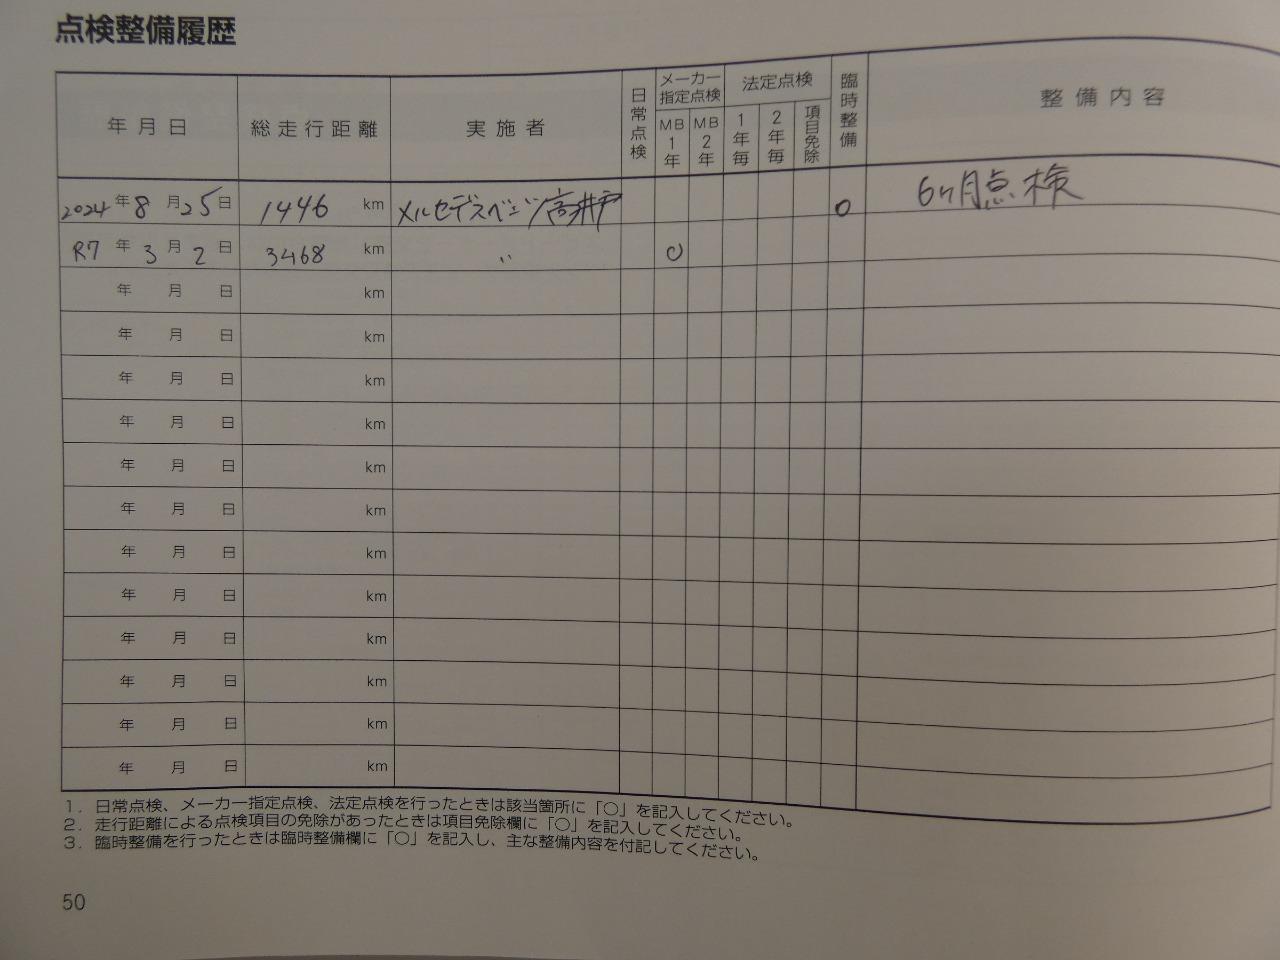 点検整備履歴
年月日 総走行距離 実施者 日常点検 メーカー指定点検 MB1年 MB2年 法定点検 1年毎 2年毎 項目免除 臨時整備 整備内容
2024年8月25日 1446 km メルセデスベンツ高井戸 ○ 6ヶ月点検
R7年3月2日 3468 km 〃 ○
年 月 日 km
年 月 日 km
年 月 日 km
年 月 日 km
年 月 日 km
年 月 日 km
年 月 日 km
年 月 日 km
年 月 日 km
年 月 日 km
年 月 日 km
年 月 日 km
1. 日常点検、メーカー指定点検、法定点検を行ったときは該当箇所に「○」を記入してください。
2. 走行距離による点検項目の免除があったときは項目免除欄に「○」を記入してください。
3. 臨時整備を行ったときは臨時整備欄に「○」を記入し、主な整備内容を付記してください。
50